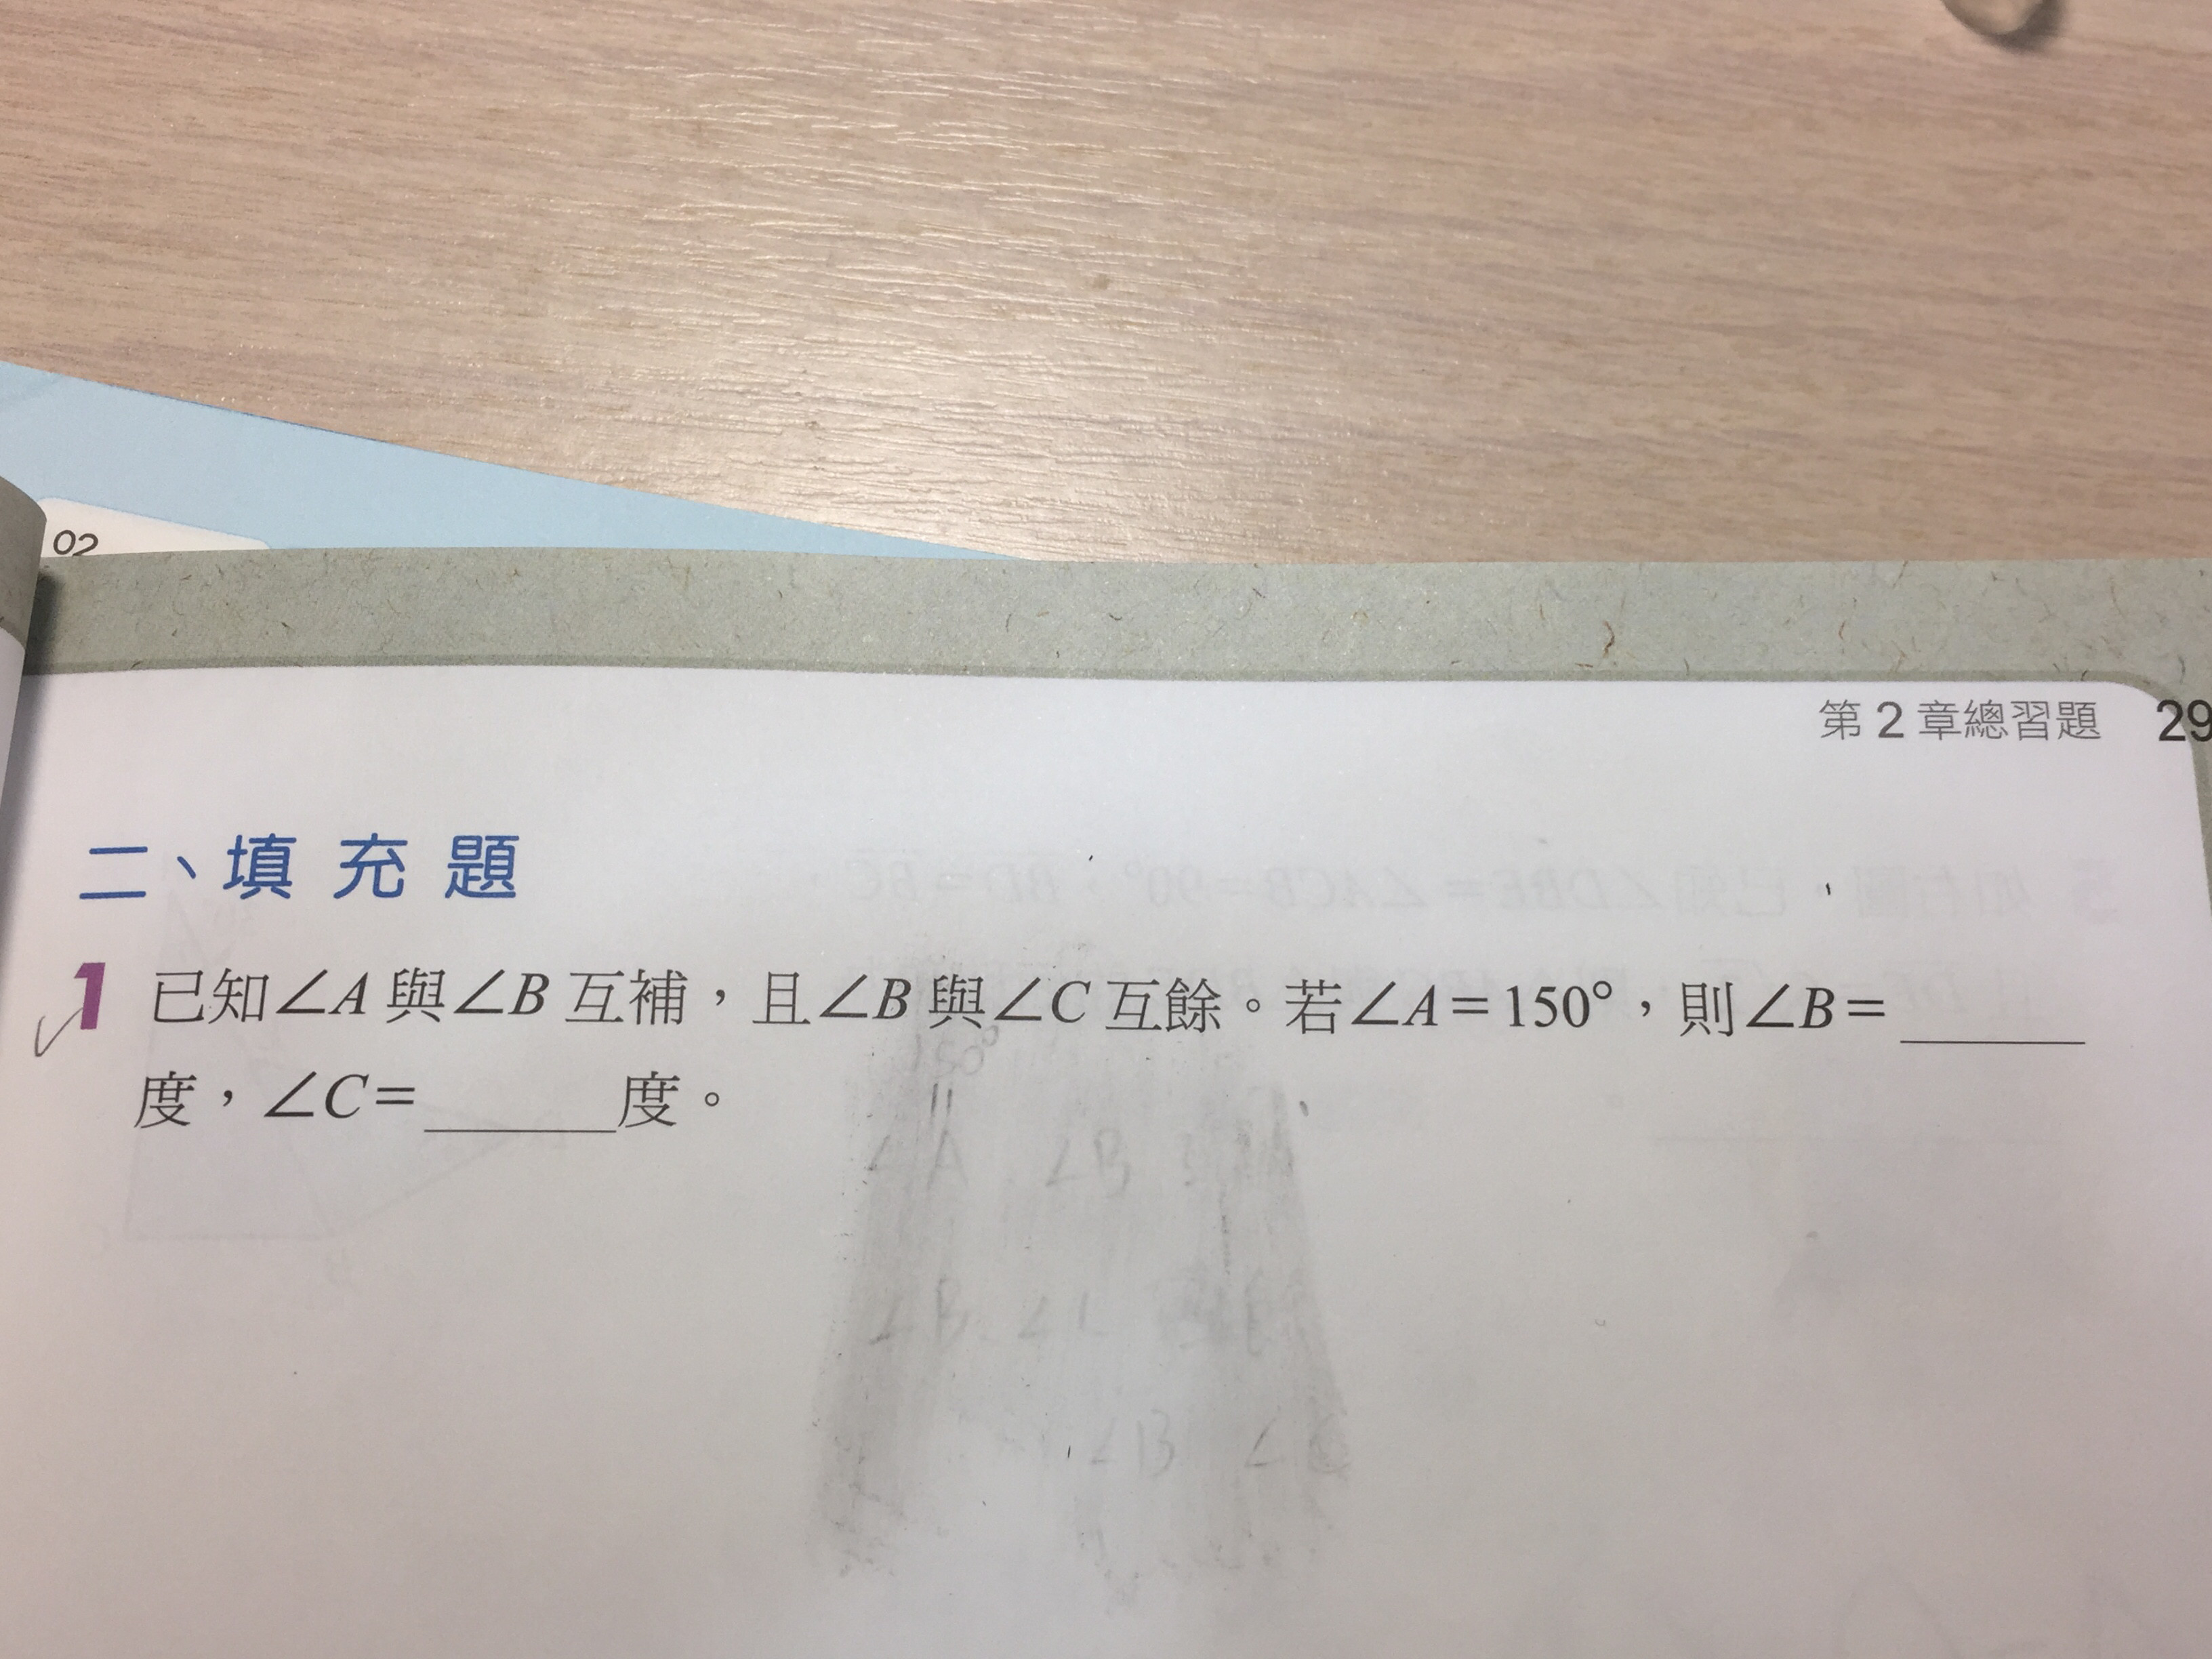 02
第2章總習題 29
二、填充題
1 已知∠A與∠B互補，且∠B與∠C互餘。若∠A=150°，則∠B=______
度，∠C=______度。
150°
||
∠A ∠B
∠B ∠C
∠B ∠C